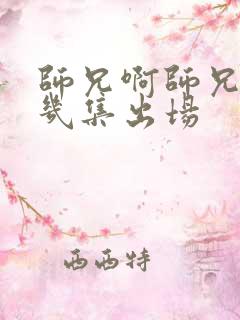 師兄啊師兄
幾集出場
西西特